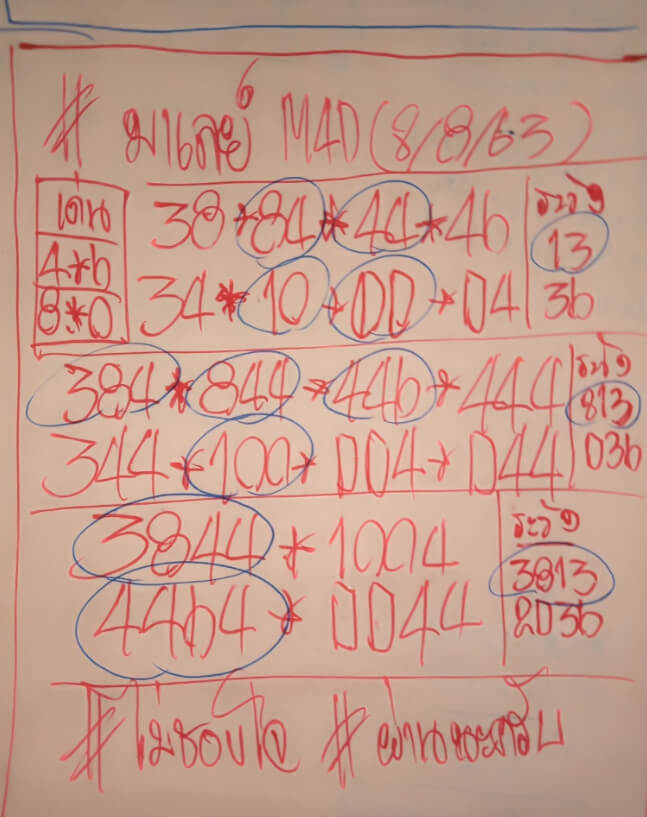 # มาเลย์ M4D (8/8/63)
เด่น
4*6
8*0
38*84*44*46
34*10*00*04
ระวัง
13
36
384*844*446*444
344*100*004*044
ระวัง
813
036
3844*1004
4464*0044
ระวัง
3813
2036
#ไม่ชอบใจ #ผ่านนะครับ